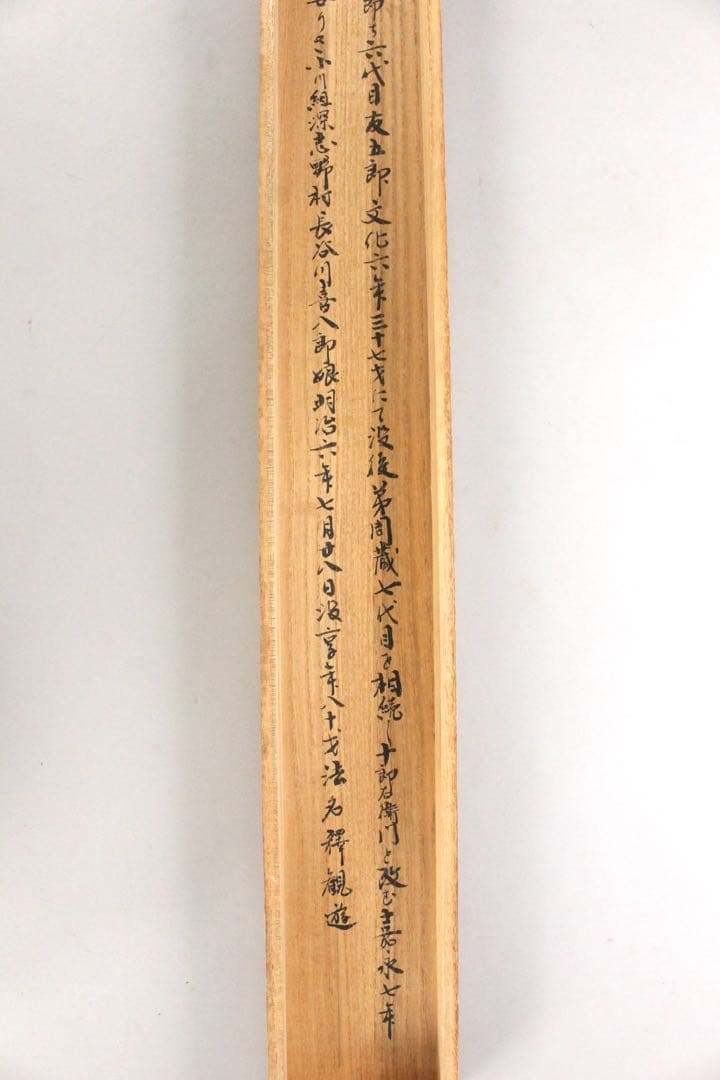 六代目友五郎文化六年三十七才にて没後弟周蔵七代目を相続し十郎右衛門と改む嘉永七年
組深志野村長谷川喜八郎娘明治六年七月廿八日没享年八十才法名釋観遊